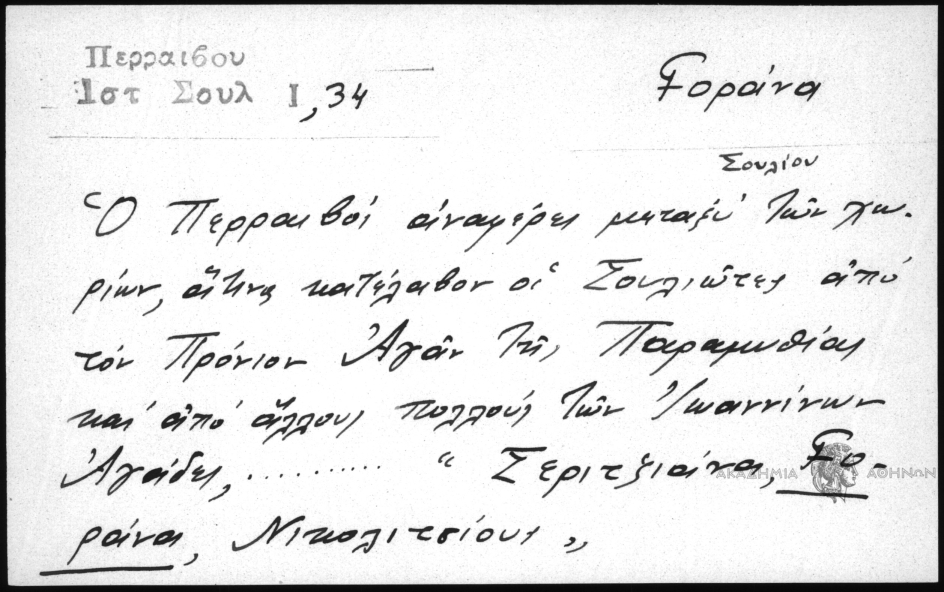 Περραιβου
Ιστ Σουλ Ι, 34
Ζοράνα
Σουλίου
Ὁ Περραιβός ἀναφέρει μεταξύ τῶν χω-
ρίων, ἅτινα κατέλαβον οἱ Σουλιῶτες ἀπό
τόν Πρόνιον Ἀγᾶν τῆς Παραμυθίας
καί ἀπό ἄλλους πολλούς τῶν Ἰωαννίνων
Ἀγάδες, .......... " Σεριτζιάνα, Ζο-
ράνα, Νικολιτσίους "
ΑΚΑΔΗΜΙΑ ΑΘΗΝΩΝ